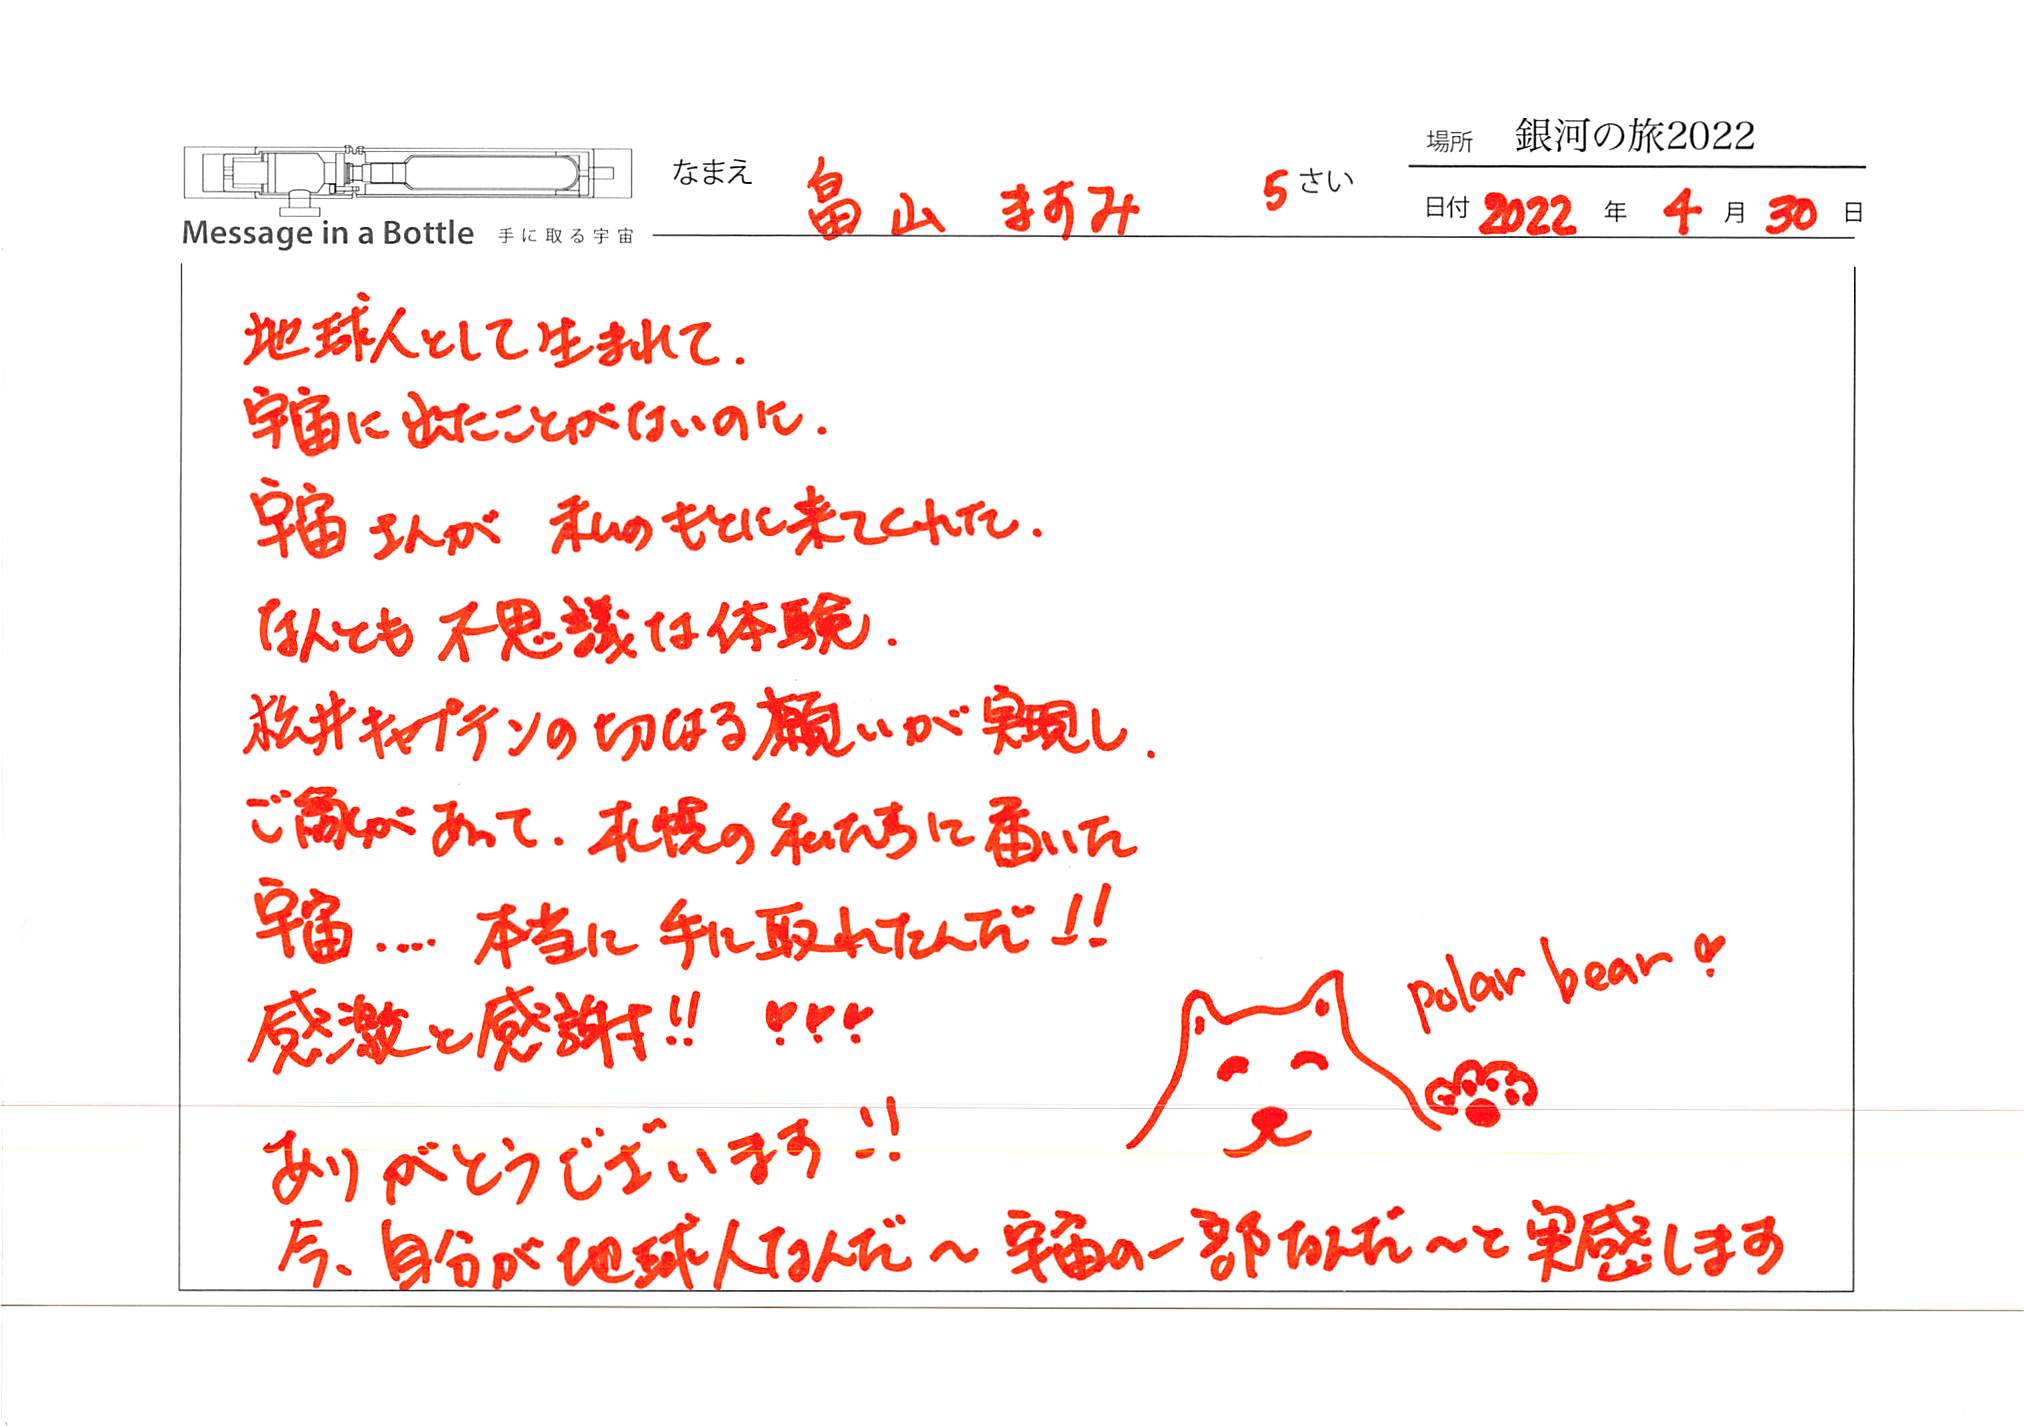 場所 銀河の旅2022
なまえ 畠山 ますみ 5さい
日付 2022年 4月 30日
Message in a Bottle 手に取る宇宙
地球人として生まれて.
宇宙に出たことがないのに.
宇宙さんが 私のもとに来てくれた.
なんとも 不思議な体験.
松井キャプテンの切なる願いが実現し.
ご縁があって. 札幌の私たちに届いた
宇宙.... 本当に 手に取れたんだ!!
感激と感謝す!! ♥♥♥
polar bear ♥
ありがとうございます!!
今、自分が地球人なんだ~宇宙の一部なんだ~と実感します